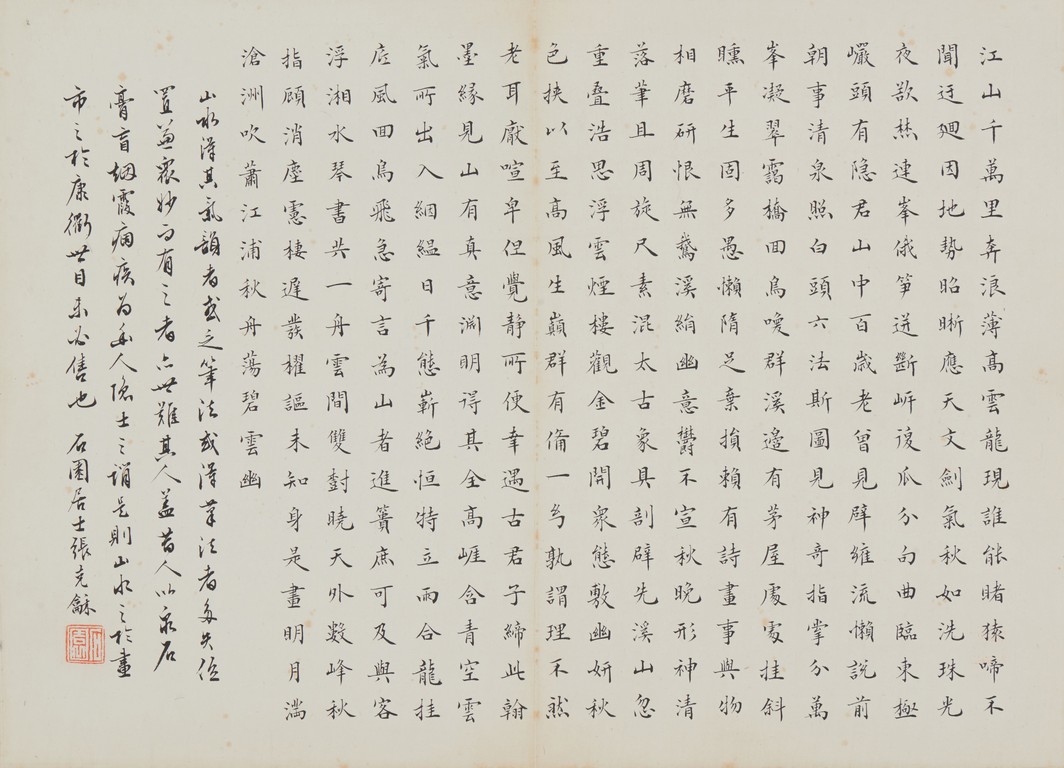 江山千萬里奔浪薄高雲龍現誰能睹猿啼不
聞迂廻因地勢昭晰應天文劍氣秋如洗珠光
夜歘焚連峯俄笋迸斷岸復瓜分句曲臨東極
巖頭有隱君山中百歲老曾見辟雍流懶說前
朝事清泉照白頭六法斯圖見神奇指掌分萬
峯凝翠靄橋回鳥喚群溪邊有茅屋處處挂斜
曛平生固多愚懶隋足棄損賴有詩畫事與物
相磨研恨無鵞溪絹幽意鬱不宣秋晚形神清
落筆且周旋尺素混太古象具剖辟先溪山忽
重疊浩思浮雲煙樓觀金碧開衆態敷幽妍秋
色挾以至高風生巔群有脩一兮孰謂理不然
老耳厭喧卑但覺靜所便幸遇古君子締此翰
墨緣見山有真意淵明得其全高崖含青空雲
氣所出入絪縕日千態嶄絕恒特立雨合龍挂
底風回鳥飛急寄言為山者進簣庶可及與客
浮湘水琴書共一舟雲間雙對曉天外數峰秋
指顧消塵慮棲遲發櫂謳未知身是畫明月滿
滄洲吹簫江浦秋舟蕩碧雲幽
山水得其氣韻者或乏筆法或得筆法者多失位
置兼衆妙而有之者亦世難其人蓋昔人以泉石
膏肓烟霞痼疾為幽人隱士之誚是則山水之於畫
市之於康衢世目未必售也 石園居士張克龢
石園